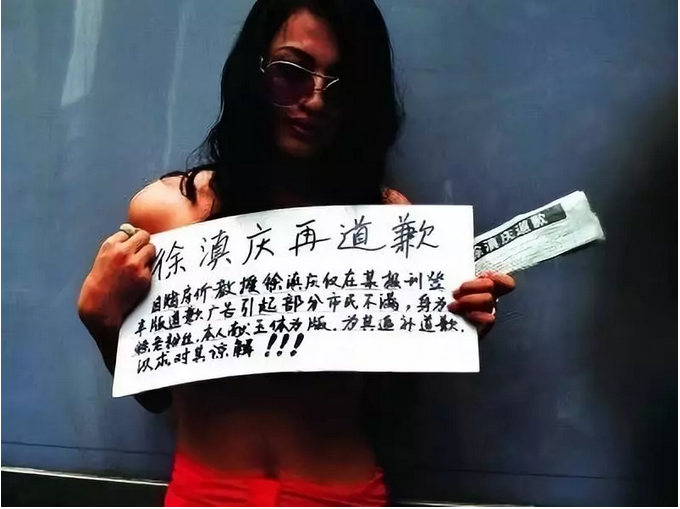 徐滇庆再道歉
因赌房价教授徐滇庆仅在某报刊登
半版道歉广告引起部分市民不满，身为
徐老粉丝.本人献玉体为版.为其追补道歉.
以求对其谅解!!!
徐滇庆道歉